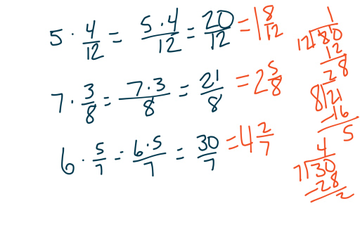 5 · 4/12 = 5·4/12 = 20/12 = 1 8/12
7 · 3/8 = 7·3/8 = 21/8 = 2 5/8
6 · 5/7 = 6·5/7 = 30/7 = 4 2/7
1
12
12
8
2
8 21
-16
5
4
7 30
-28
2